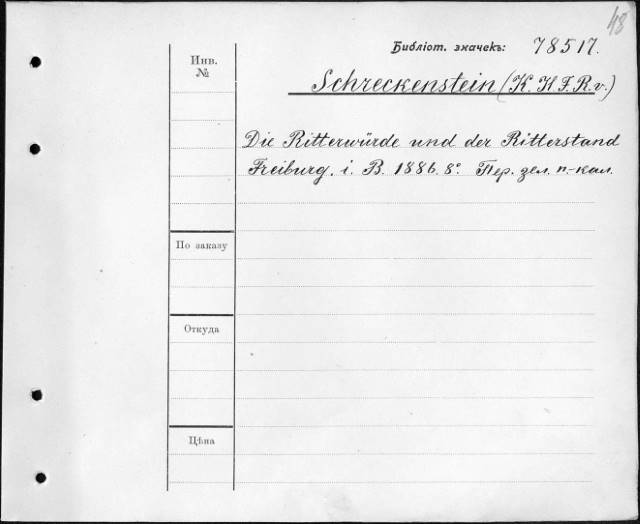 48
Библіот. значекъ: 78517.
Инв.
№
Schreckenstein (K. H. F. R. v.)
Die Ritterwürde und der Ritterstand
Freiburg. i. B. 1886. 8° Пер. зел. п.-кал.
По заказу
Откуда
Цѣна